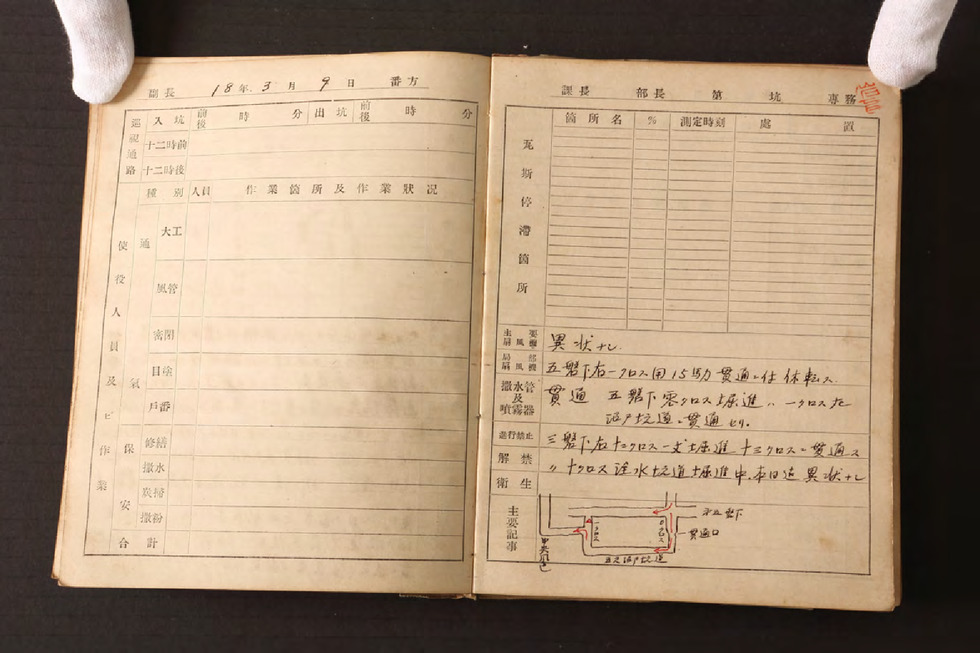 副長 18年 3月 9日 番方
巡視通路 入坑 前後 時 分 出坑 前後 時 分
十二時前
十二時後
使役人員及ビ作業
種別 人員 作業箇所及作業狀况
通氣
大工
風管
密閉
目塗
戶番
保安
修繕
撒水
炭掃
撒粉
合計
課長 部長 第 坑 專務
瓦斯停滯箇所
箇所名 % 測定時刻 處置
主要扇風機 異状ナシ
局部扇風機 五盤下右一クロス用15馬力貫通ニ付休転ス
撒水管及噴霧器 貫通 五盤下零クロス堀進 〃一クロス左
沿戸坑道ニ貫通セリ。
進行禁止 三盤下右十二クロス一丈堀進 十三クロスニ貫通ス
解禁 〃十クロス注水坑道堀進中、本日迄異状ナシ
衛生
主要記事
一クロス
0クロス
貫通口